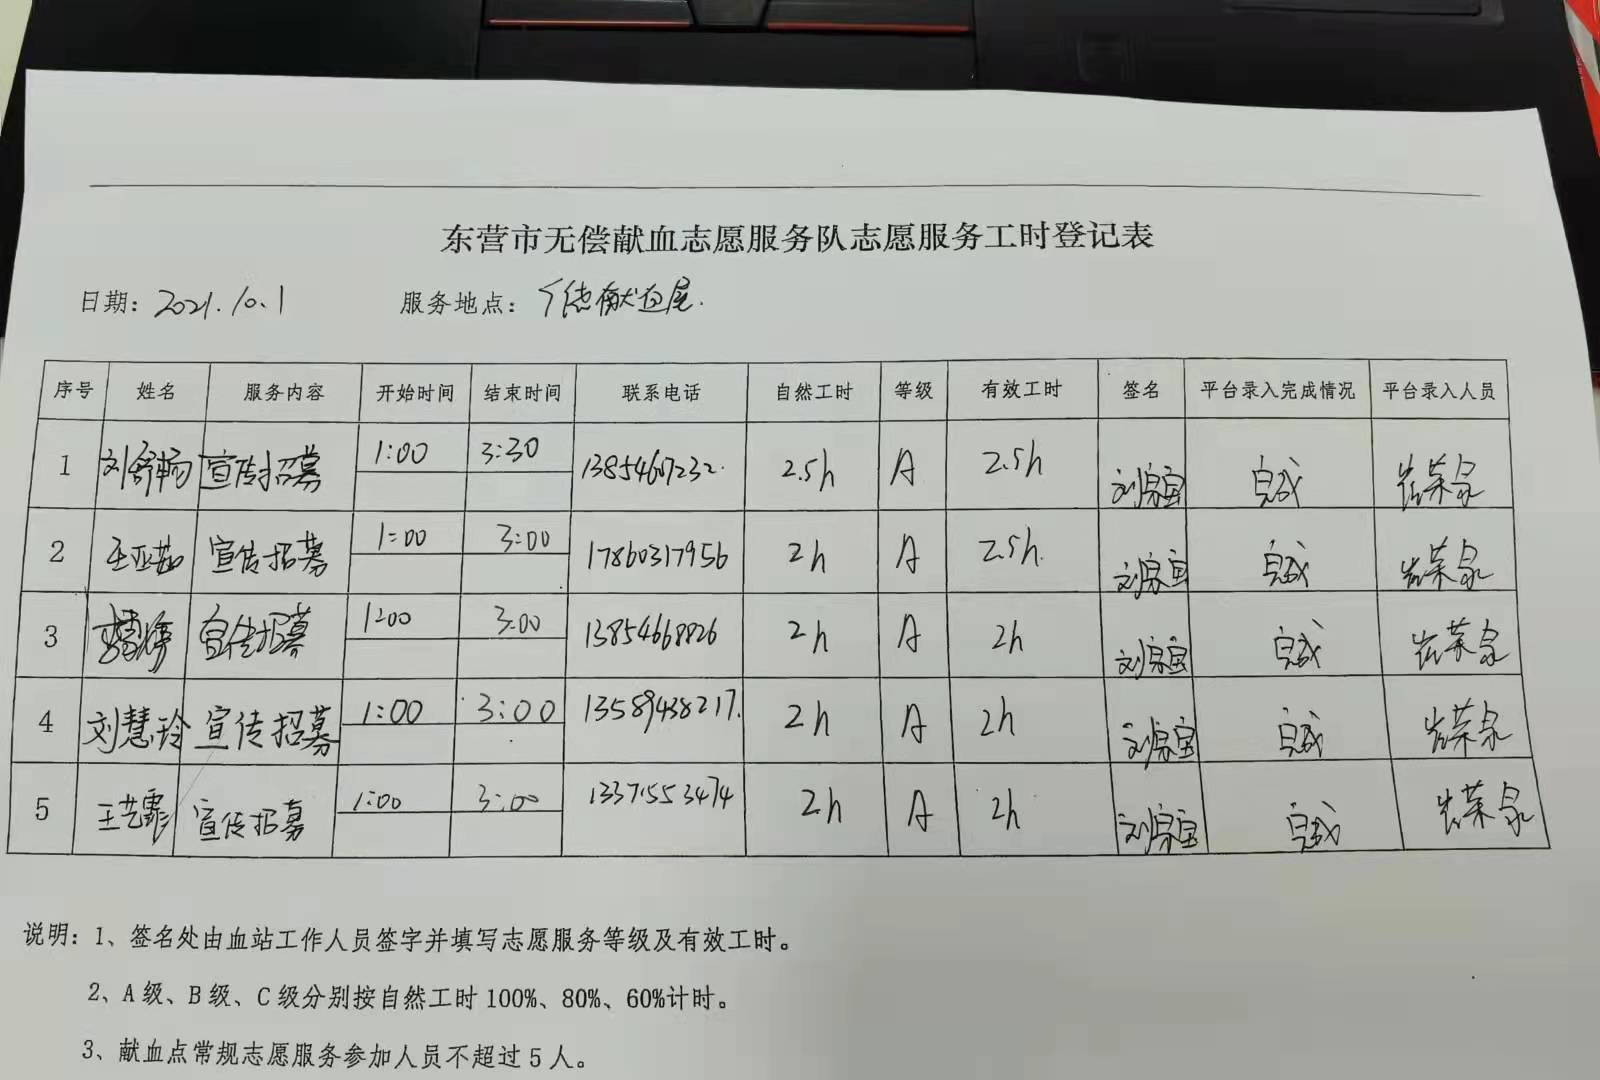 东营市无偿献血志愿服务队志愿服务工时登记表
日期：2021.10.1 服务地点：
序号 姓名 服务内容 开始时间 结束时间 联系电话 自然工时 等级 有效工时 签名 平台录入完成情况 平台录入人员
1 刘舒畅 宣传招募 1:00 3:30 13854607232. 2.5h A 2.5h 完成
2 王亚茹 宣传招募 1:00 3:00 17860317956 2h A 2.5h. 完成
3 宣传招募 1:00 3:00 13854668826 2h A 2h 完成
4 刘慧玲 宣传招募 1:00 3:00 13589438217. 2h A 2h 完成
5 王艺霏 宣传招募 1:00 3:00 13371553474 2h A 2h 完成
说明：1、签名处由血站工作人员签字并填写志愿服务等级及有效工时。
2、A级、B级、C级分别按自然工时100%、80%、60%计时。
3、献血点常规志愿服务参加人员不超过5人。